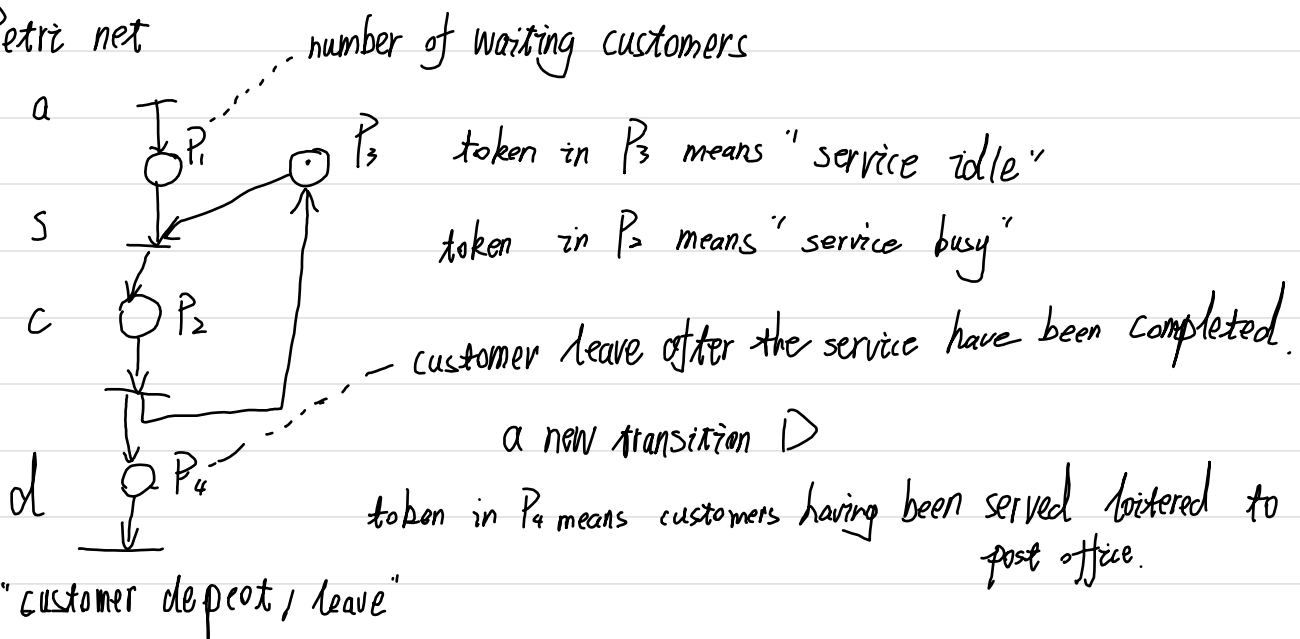 etri net
number of waiting customers
a
P₁
P₃ token in P₃ means "service idle"
s
token in P₂ means "service busy"
c
P₂
customer leave after the service have been completed.
a new transition D
d
P₄
token in P₄ means customers having been served loitered to
post office.
"customer depeot, leave"